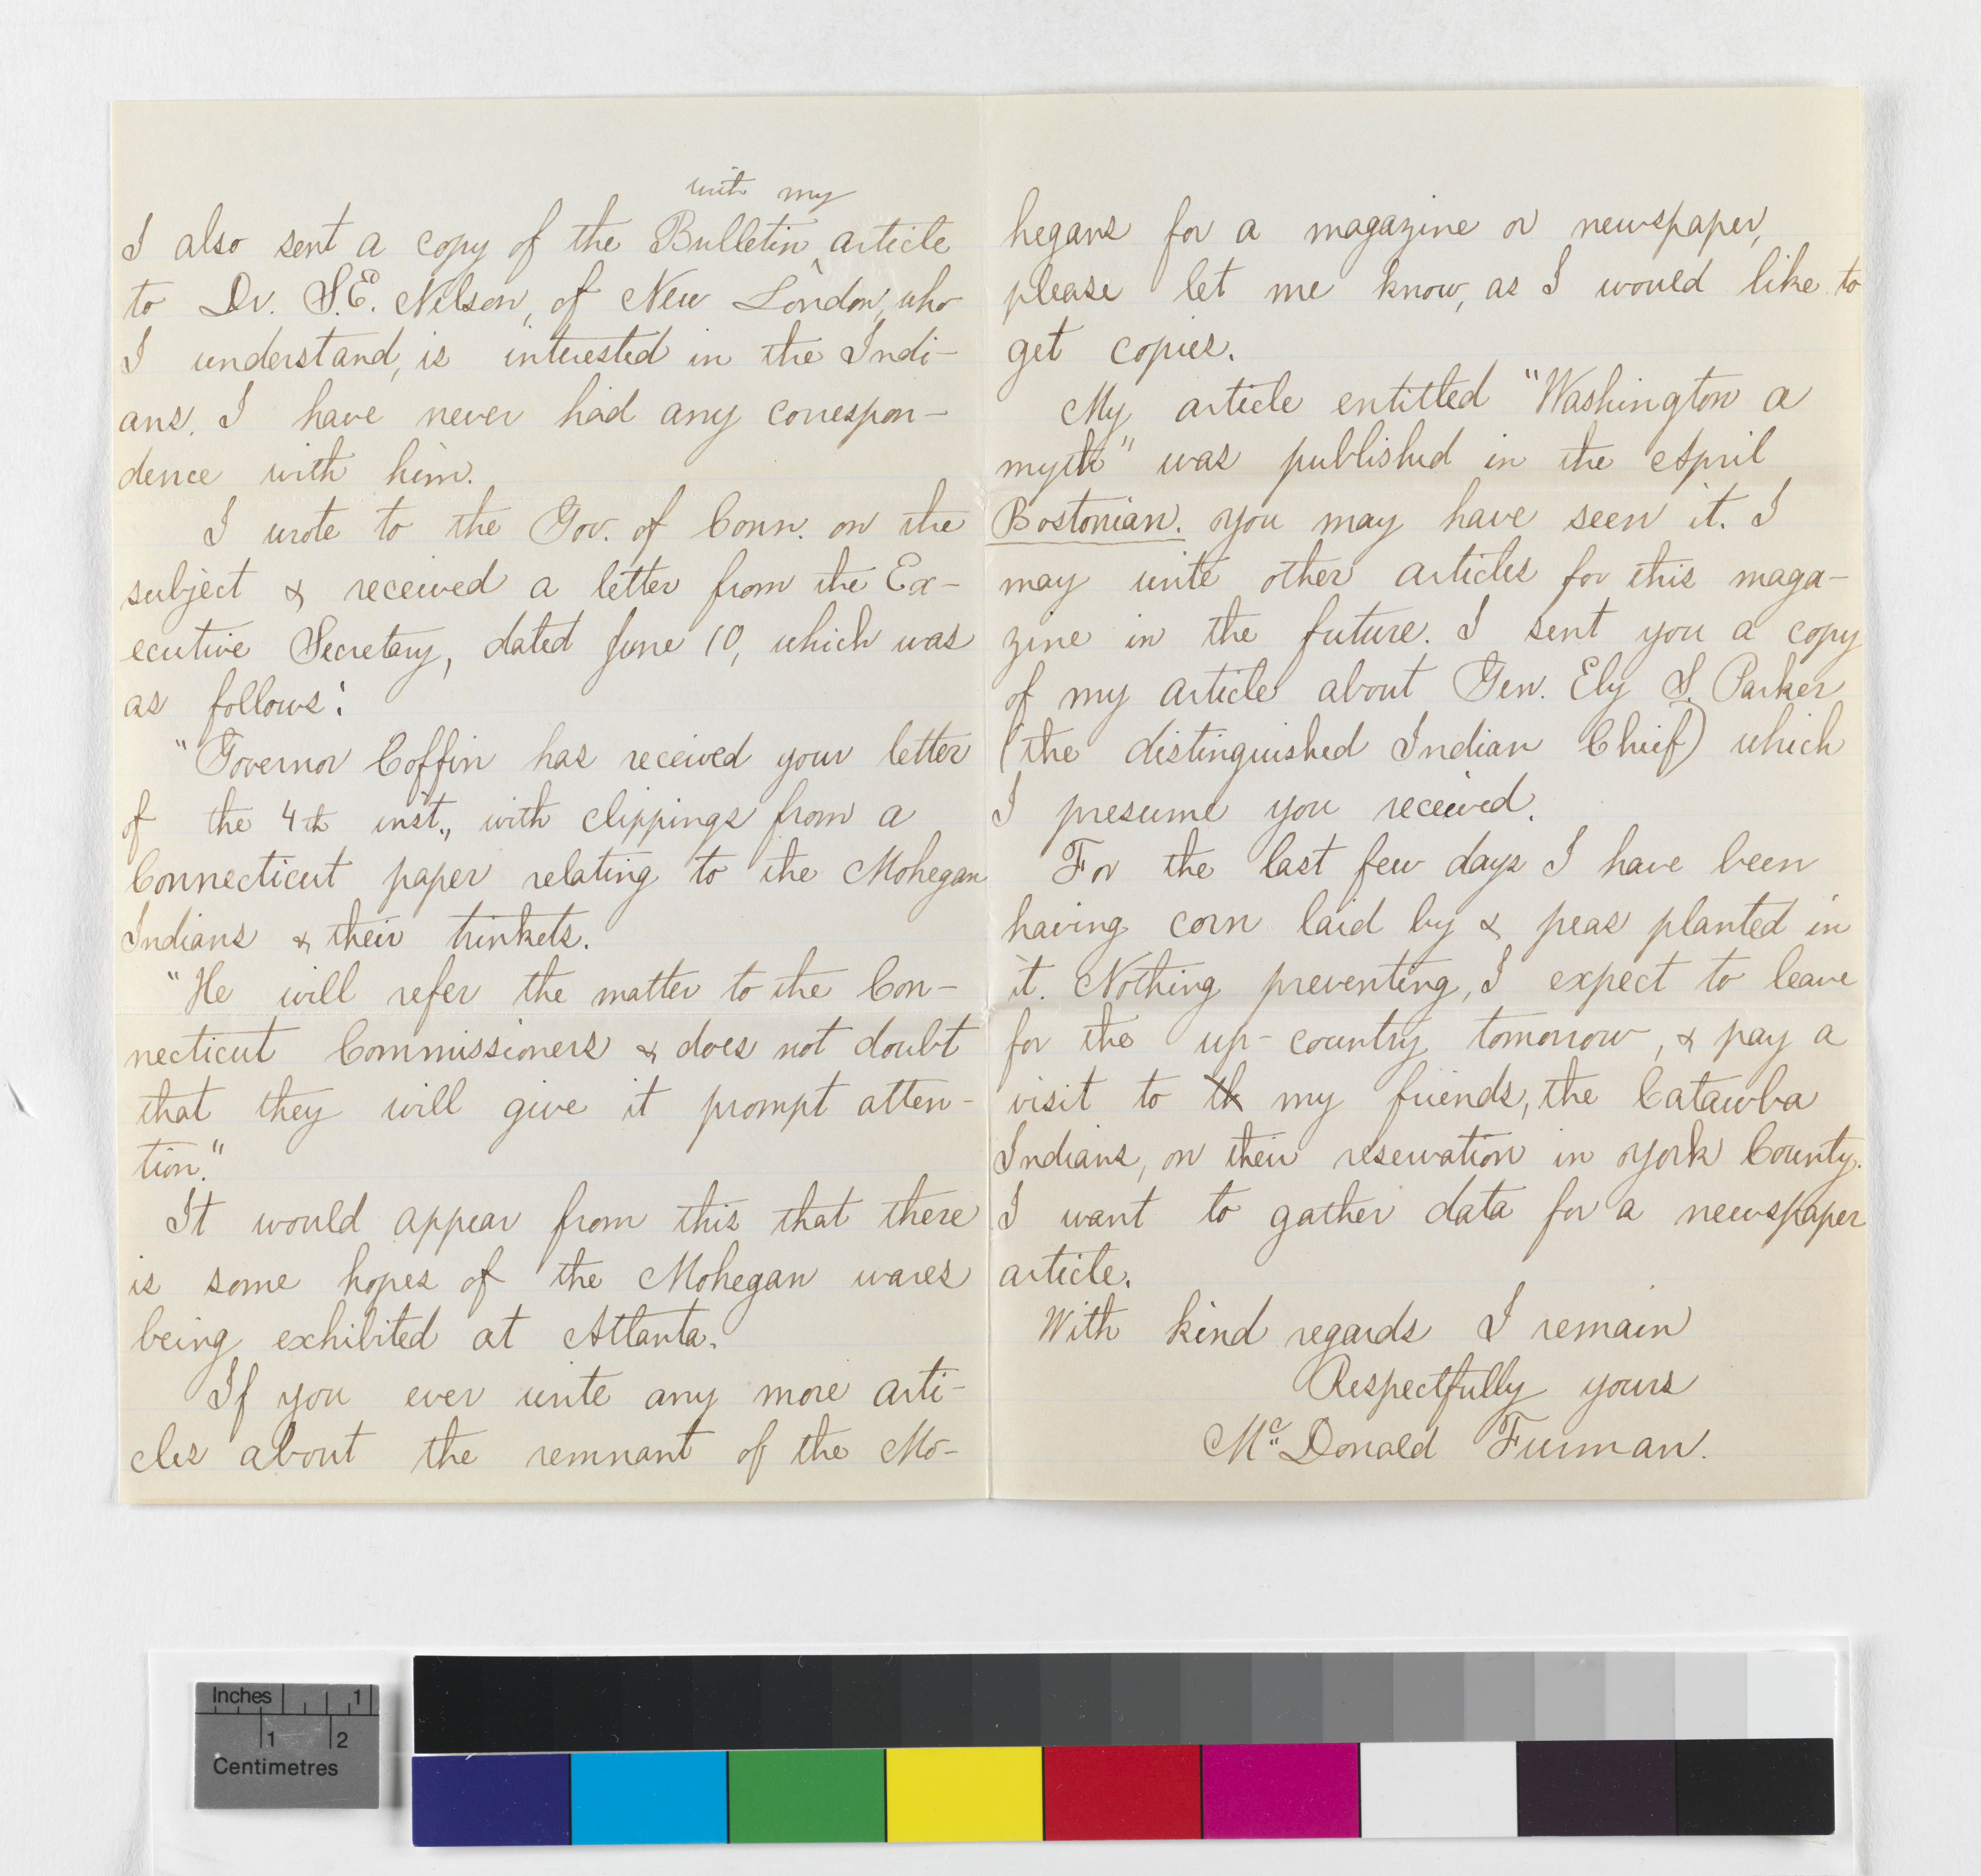 with my
I also sent a copy of the Bulletin ^ article
to Dr. S.E. Nelson, of New London, who
I understand, is interested in the Indi-
ans. I have never had any correspon-
dence with him.
I wrote to the Gov. of Conn. on the
subject & received a letter from the Ex-
ecutive Secretary, dated June 10, which was
as follows:
"Governor Coffin has received your letter
of the 4th inst., with clippings from a
Connecticut paper relating to the Mohegan
Indians & their trinkets.
"He will refer the matter to the Con-
necticut Commissioners & does not doubt
that they will give it prompt atten-
tion."
It would appear from this that there
is some hopes of the Mohegan wares
being exhibited at Atlanta.
If you ever write any more arti-
cles about the remnant of the Mo-
hegans for a magazine or newspaper,
please let me know, as I would like to
get copies.
My article entitled "Washington a
myth" was published in the April
Bostonian. You may have seen it. I
may write other articles for this maga-
zine in the future. I sent you a copy
of my article about Gen. Ely S. Parker
(the distinguished Indian Chief) which
I presume you received.
For the last few days I have been
having corn laid by & peas planted in
it. Nothing preventing, I expect to leave
for the up-country tomorrow, & pay a
visit to th my friends, the Catawba
Indians, on their reservation in York County.
I want to gather data for a newspaper
article.
With kind regards I remain
Respectfully yours
McDonald Furman.
Inches 1
1 2
Centimetres